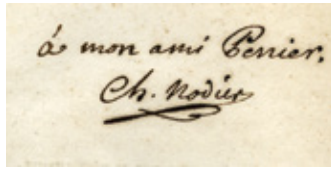 à mon ami Perrier.
Ch. Nodier